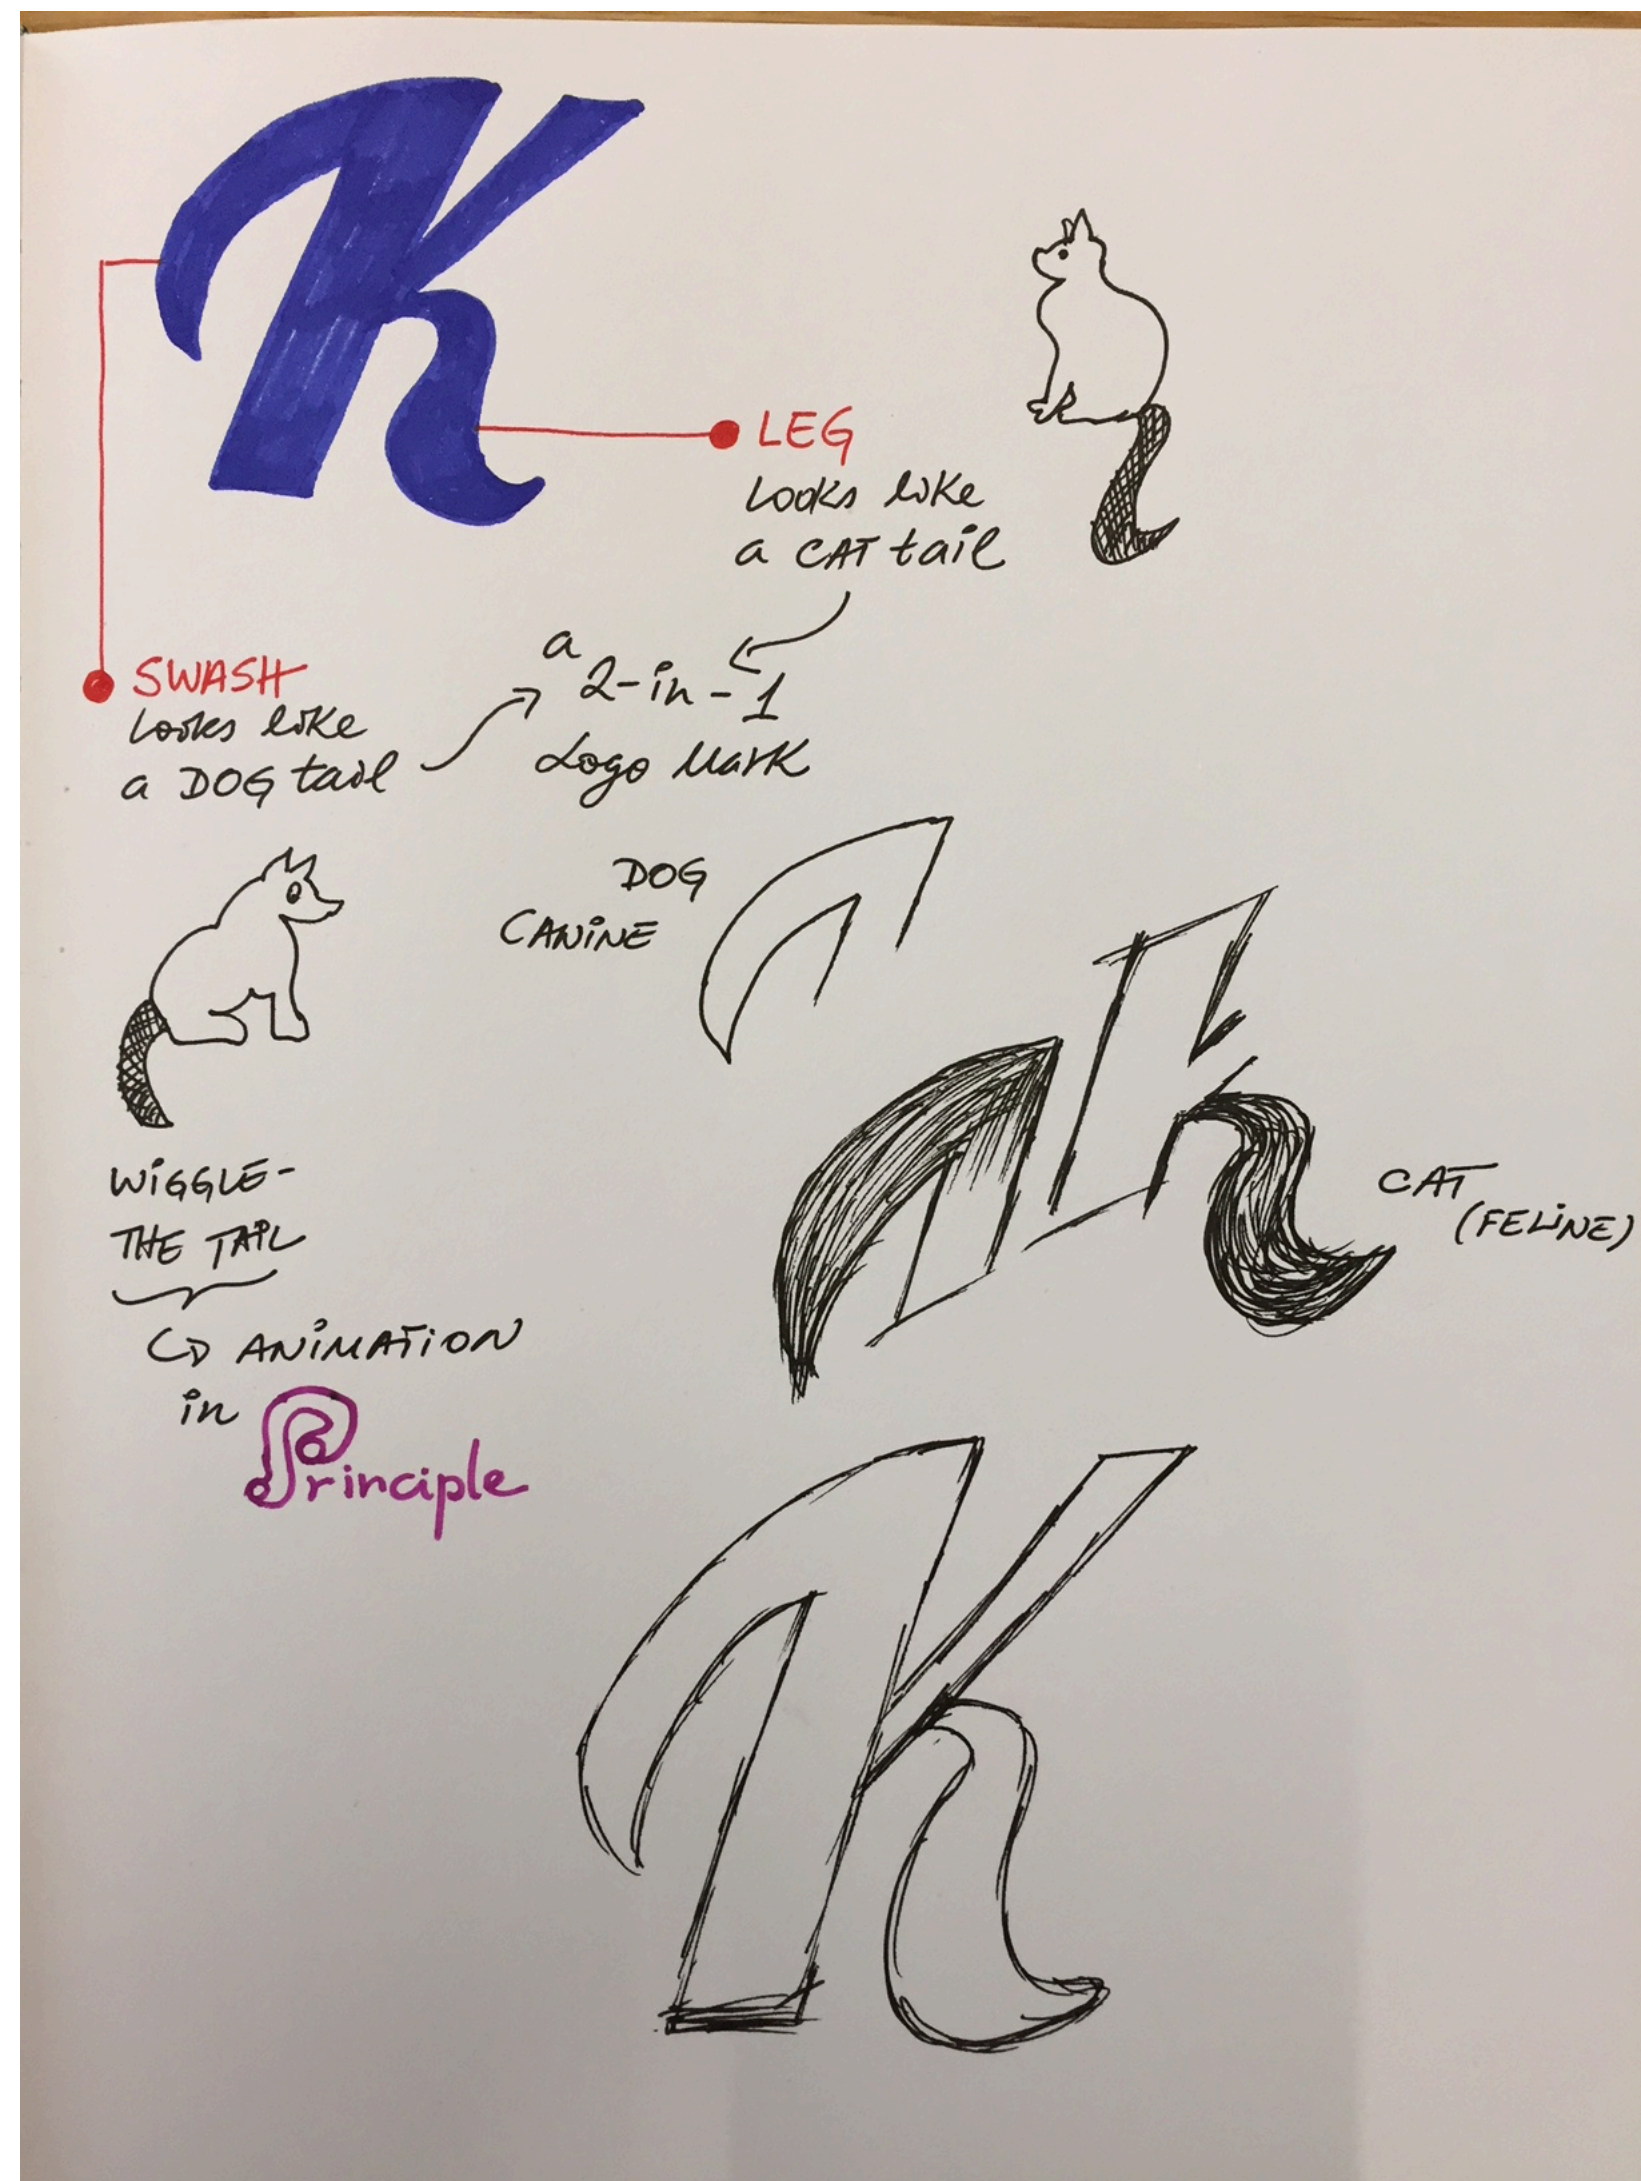 K
LEG
Looks like
a CAT tail
SWASH
Looks like
a DOG tail
a
2-in-1
Logo Mark
DOG
CANINE
CAT
(FELINE)
WIGGLE-
THE TAIL
ANIMATION
in Principle
K